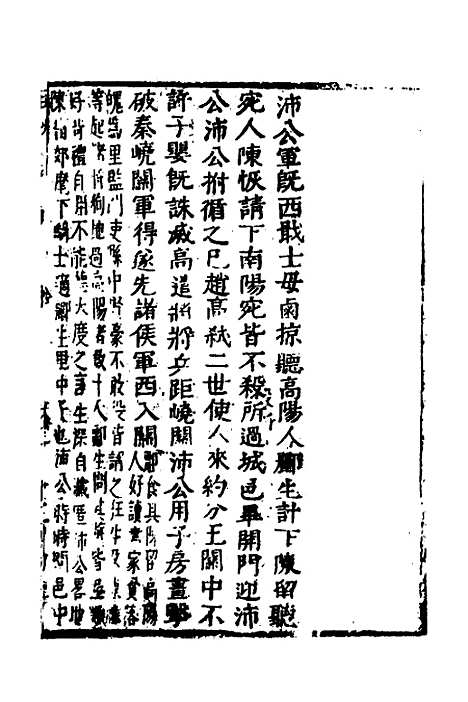 沛公軍既西戢士毋鹵掠聽高陽人酈生計下陳留聽
宛人陳恢請下南陽宛皆不殺所過城邑畢開門迎沛
公沛公拊循之已趙高弒二世使人來約分王關中不
許子嬰既誅滅高遣將將兵距嶢關沛公用子房畫擊
破秦嶢關軍得遂先諸侯軍西入關酈食其陳留高陽
人好讀書家貧落
魄為里監門吏縣中賢豪不敢役皆謂之狂生及陳勝
等起諸將徇地過高陽者數十人酈生問其將皆
好苛禮自用不能聽大度之言生深自藏匿沛公略地
陳留郊麾下騎士適酈生里中子也沛公時時問邑中